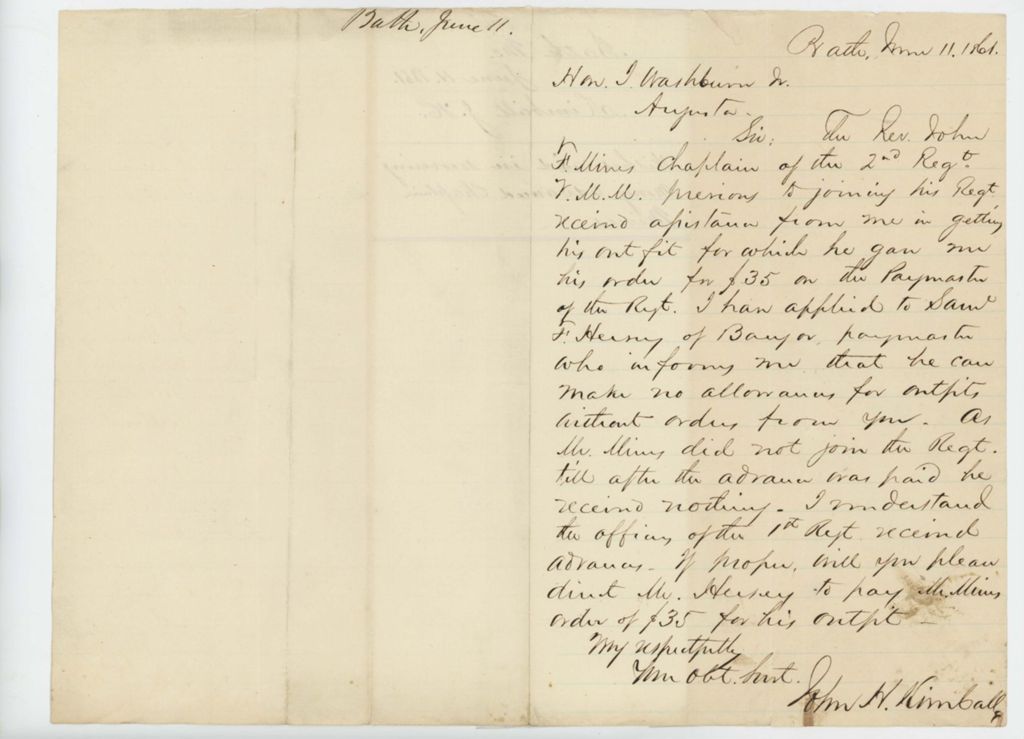 Bath, June 11.
Bath, June 11. 1861.
Hon. I. Washburn Jr.
Augusta.
Sir: The Rev. John
F. Mines Chaplain of the 2nd Regt.
V.M.M. previous to joining his Regt
received assistance from me in getting
his outfit for which he gave me
his order for $35 on the Paymaster
of the Regt. I have applied to Saml
F. Hersey of Bangor, paymaster
who informs me that he can
make no allowances for outfits
without orders from you. As
Mr. Mines did not join the Regt.
till after the advance was paid he
received nothing. I understand
the officers of the 1st Regt received
advances. If proper, will you please
direct Mr. Hersey to pay Mr. Mines
order of $35 for his outfit
Very respectfully
Your Obt. Servt.
John H. Kimball